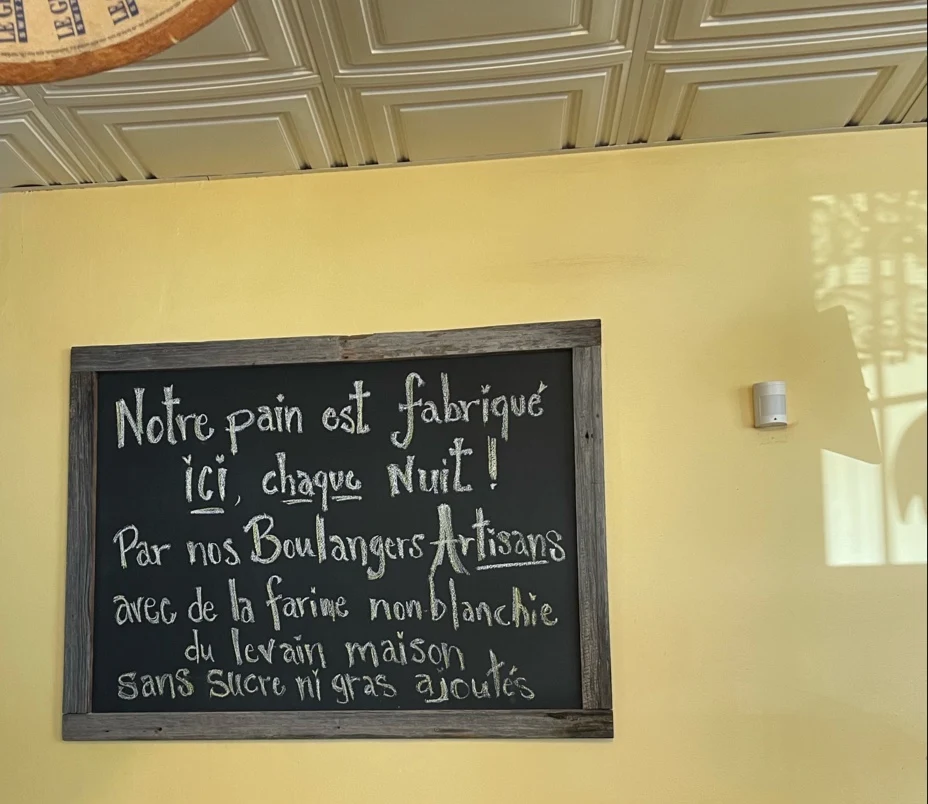 Notre pain est fabriqué
ici, chaque Nuit !
Par nos Boulangers Artisans
avec de la farine non-blanchie
du levain maison
sans sucre ni gras ajoutés